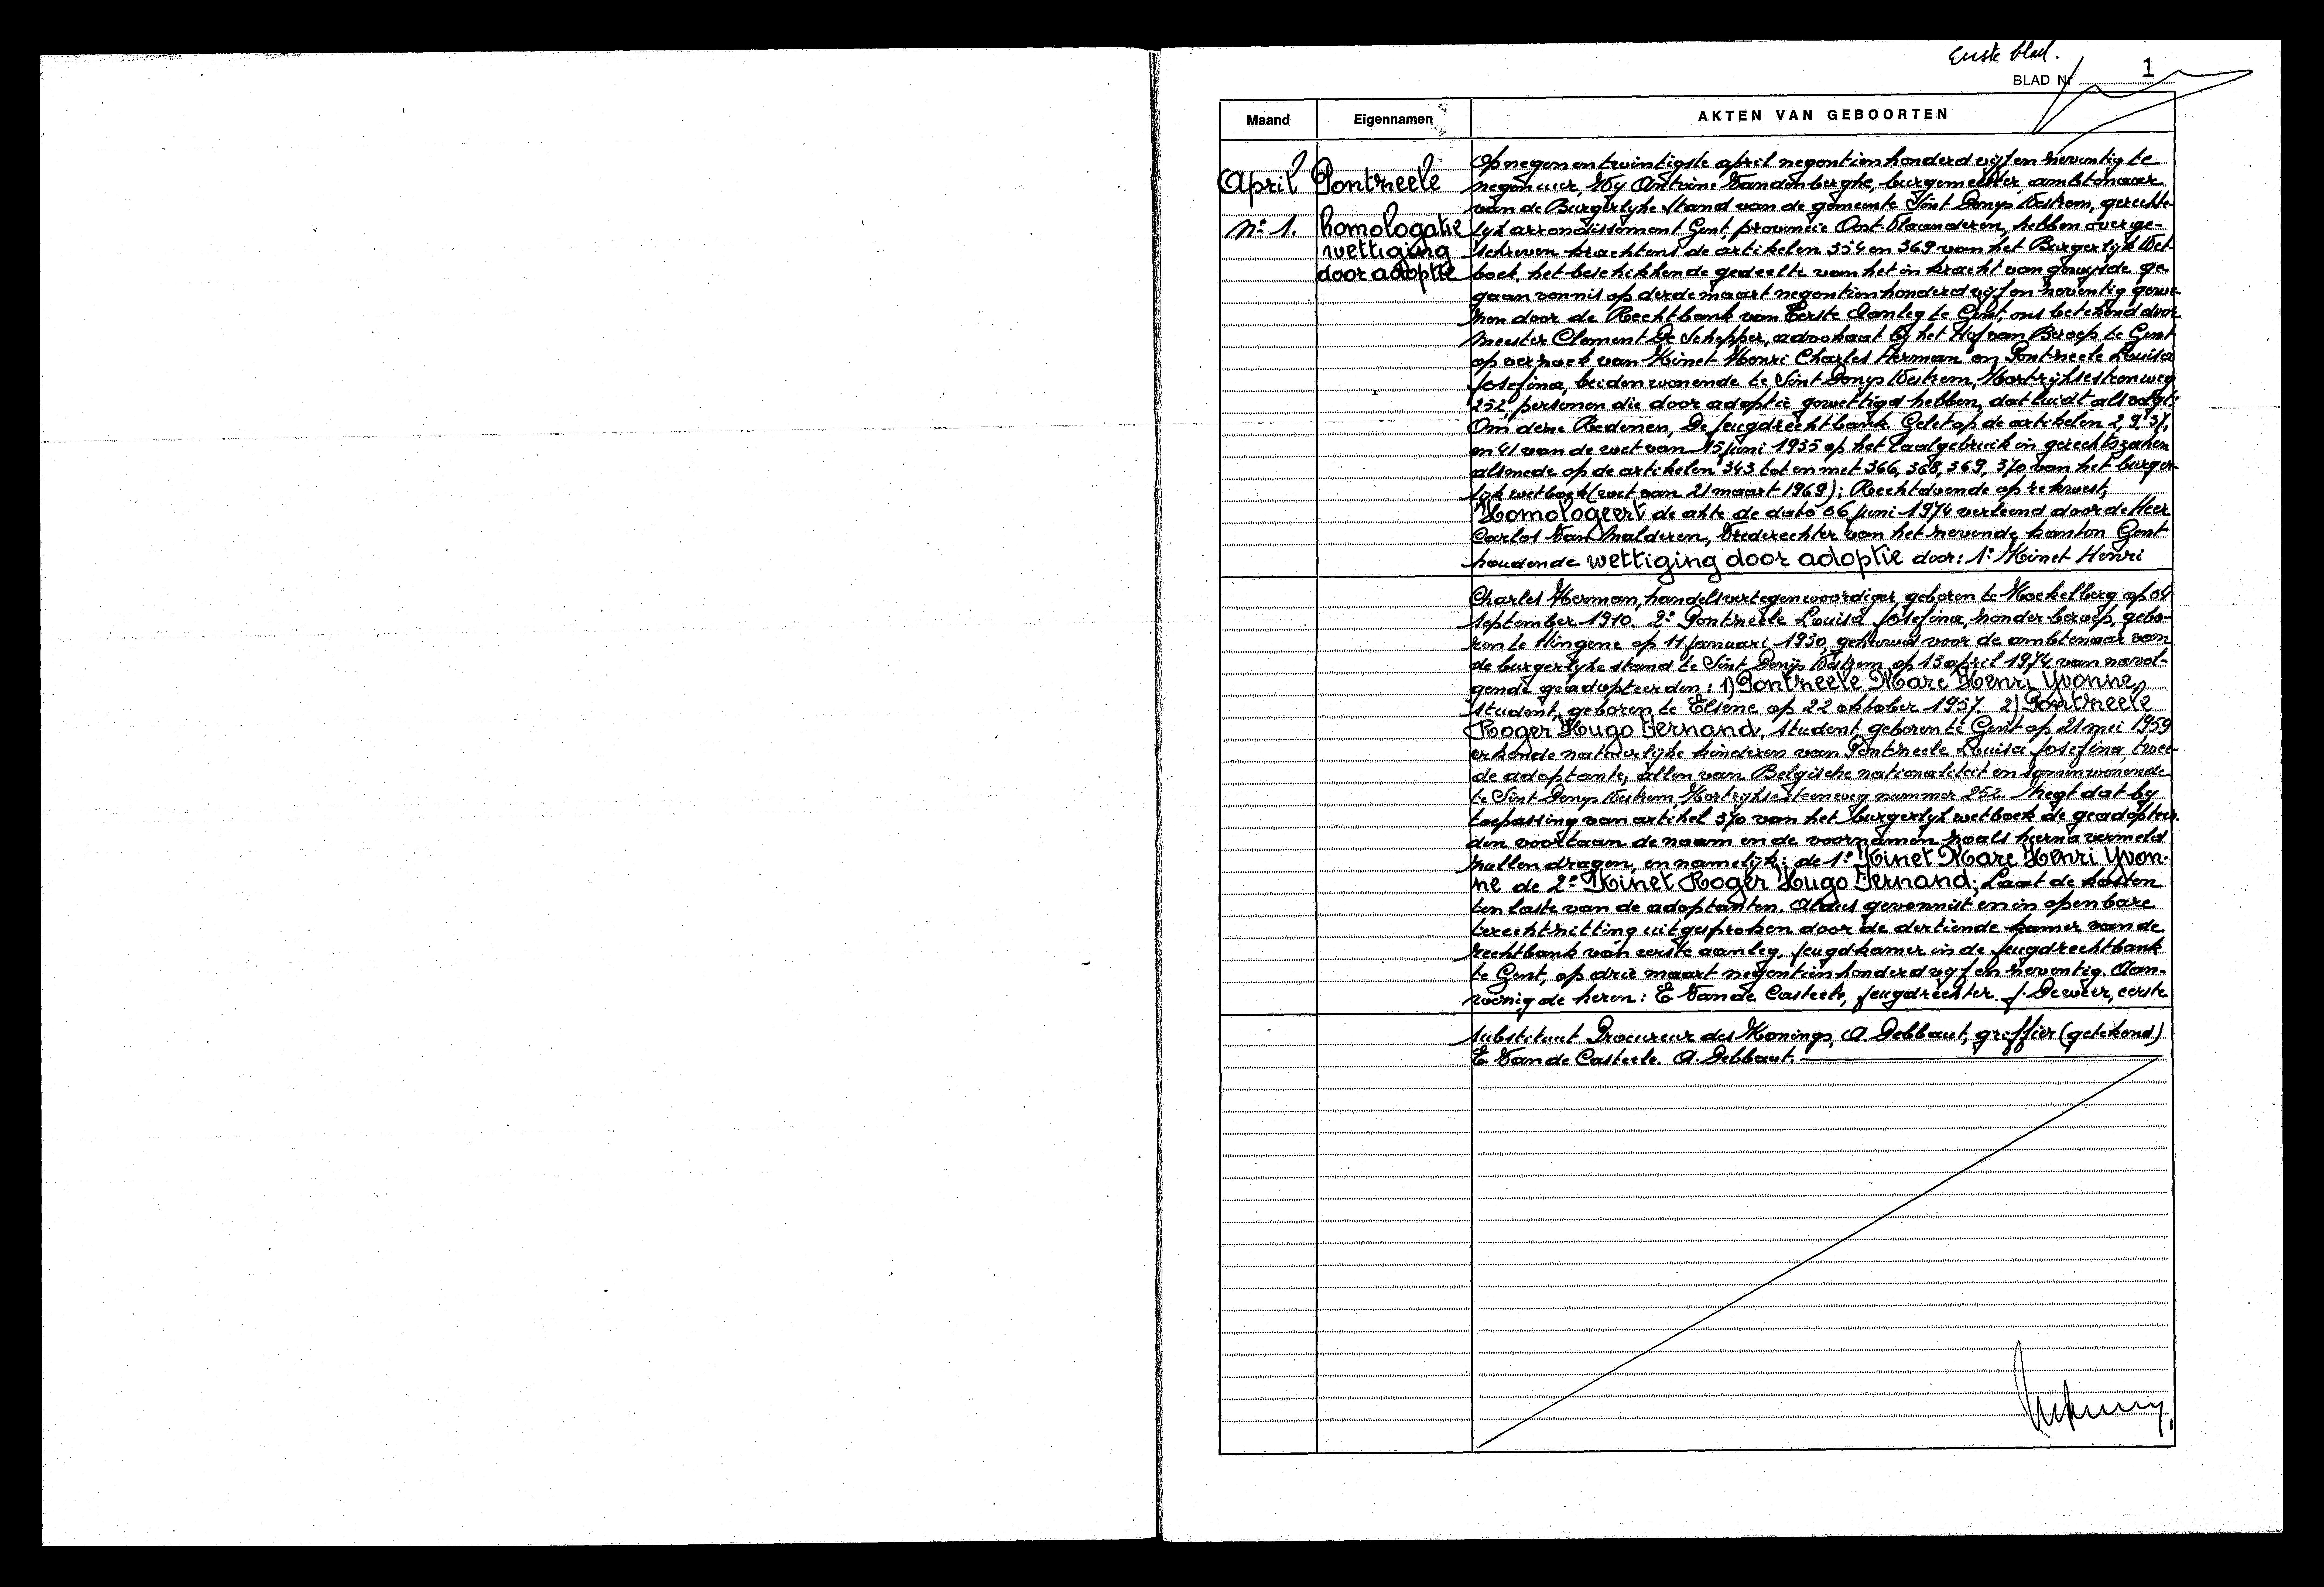 Eerste blad.
BLAD Nr 1
Maand
Eigennamen
AKTEN VAN GEBOORTEN
April
Pontzeele
N° 1.
homologatie
wettiging
door adoptie
Op negenentwintigste april negentienhonderd vijfenzeventig te
negen uur, Wy Antoine Vandenberghe, burgemeester, ambtenaar
van de Burgerlyke Stand van de gemeente Sint Denys Westrem, gerechte-
lyk arrondissement Gent, provincie Oost Vlaanderen, hebben overge-
schreven krachtens de artikelen 354 en 369 van het Burgerlyk Wet-
boek, het beschikkende gedeelte van het in kracht van gewysde ge-
gaan vonnis op derde maart negentienhonderd vijf en zeventig gewe-
zen door de Rechtbank van Eerste Aanleg te Gent, ons betekend door
Meester Clement De Schepper, advokaat by het Hof van Beroep te Gent
op verzoek van Kinet Henri Charles Herman en Pontzeele Louisa
Josefina, beiden wonende te Sint Denys Westrem, Kortrijksesteenweg
252, personen die door adoptie gewettigd hebben, dat luidt als volgt:
Om deze Redenen, De Jeugdrechtbank. Gelet op de artikelen 2, 9, 37,
en 41 van de wet van 15 juni 1935 op het taalgebruik in gerechtszaken
alsmede op de artikelen 343 tot en met 366, 368, 369, 370 van het burger-
lyk wetboek (wet van 21 maart 1969); Rechtdoende op rekwest,
Homologeert de akte de dato 06 juni 1974 verleend door de Heer
Carlos Van Malderen, Vrederechter van het zevende kanton Gent
houdende wettiging door adoptie door: 1° Kinet Henri
Charles Herman, handelsvertegenwoordiger, geboren te Koekelberg op 04
september 1910. 2° Pontzeele Louisa Josefina, zonder beroep, gebo-
ren te Hingene op 11 januari 1930, gehuwd voor de ambtenaar van
de burgerlyke stand te Sint Denijs Westrem op 13 april 1974 van navol-
gende geadopteerden: 1) Pontzeele Marc Henri Yvonne,
student, geboren te Elsene op 22 oktober 1957. 2) Pontzeele
Roger Hugo Fernand, student, geboren te Gent op 21 mei 1959
erkende natuurlijke kinderen van Pontzeele Louisa Josefina, twee-
de adoptante, allen van Belgische nationaliteit en samenwonende
te Sint Denys Westrem, Kortrijksesteenweg nummer 252. Zegt dat by
toepassing van artikel 370 van het burgerlyk wetboek de geadopteer-
den voortaan de naam en de voornamen zoals hierna vermeld
zullen dragen, en namelijk: de 1° Kinet Marc Henri Yvon-
ne de 2° Kinet Roger Hugo Fernand; Laat de kosten
ten laste van de adoptanten. Aldus gevonnist en in openbare
terechtzitting uitgesproken door de dertiende kamer van de
rechtbank van eerste aanleg, Jeugdkamer in de Jeugdrechtbank
te Gent, op drie maart negentienhonderd vijf en zeventig. Aan-
wezig de heren: E Van de Casteele, Jeugdrechter. J. Deweer, eerste
substituut Procureur des Konings, A. Debbaut, griffier (getekend)
E Van de Casteele. A. Debbaut.